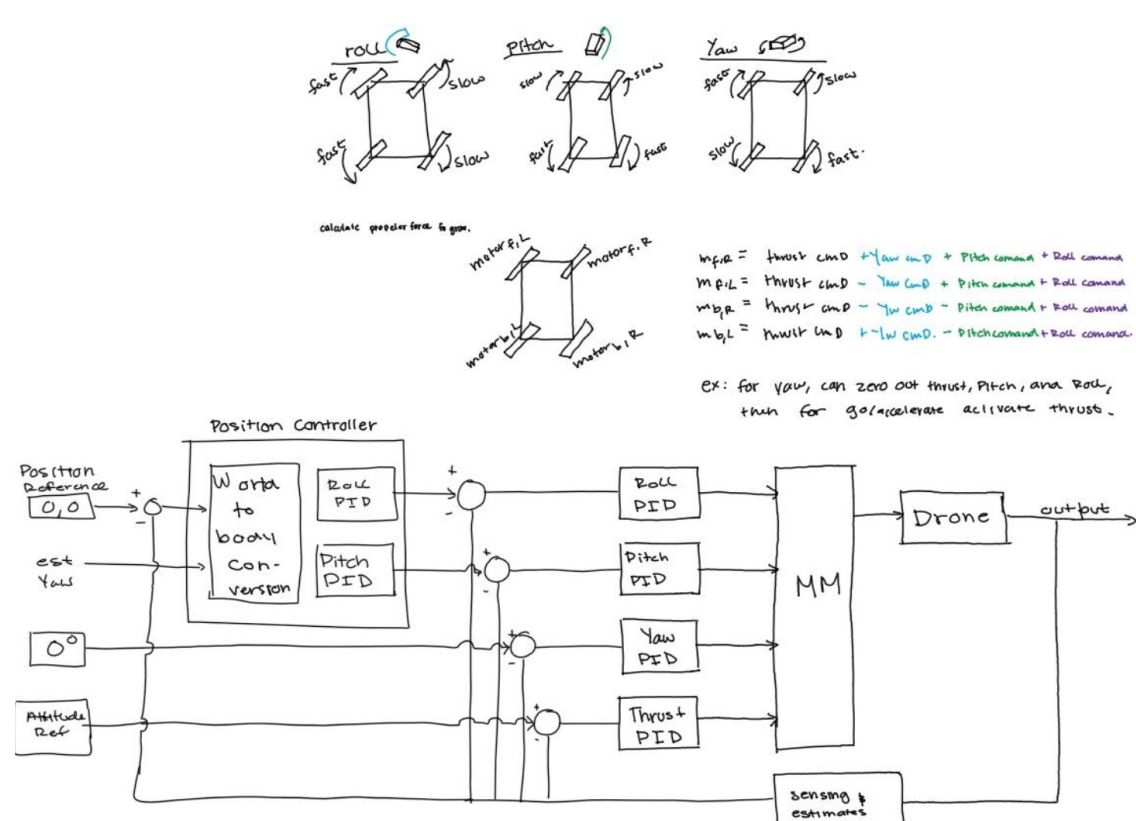 roll
Pitch
Yaw
fast
slow
slow
slow
fast
slow
fast
slow
fast
fast
slow
fast.
calculate propeler force to grow.
motor f,L
motor f,R
motor b,L
motor b,R
mf,R = thrust cmD +Yaw cmD + Pitch comand + Roll comand
mf,L = thrust cmD - Yaw cmD + Pitch comand + Roll comand
mb,R = thrust cmD - Yw cmb - Pitch comand + Roll comand
mb,L = thrust cmD +-Yw cmD. - Pitch comand + Roll comand.
ex: for yaw, can zero out thrust, Pitch, and Roll,
then for go/accelerate activate thrust.
Position Controller
Position
Reference
0,0
+
-
est
Yaw
World
to
body
con-
version
Roll
PID
Pitch
PID
+
-
+
-
Roll
PID
Pitch
PID
MM
Drone
output
0°
+
-
Yaw
PID
Attitude
Ref
+
-
Thrust
PID
sensing &
estimates